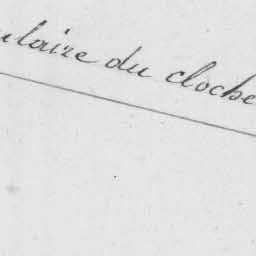 ulaire du cloche